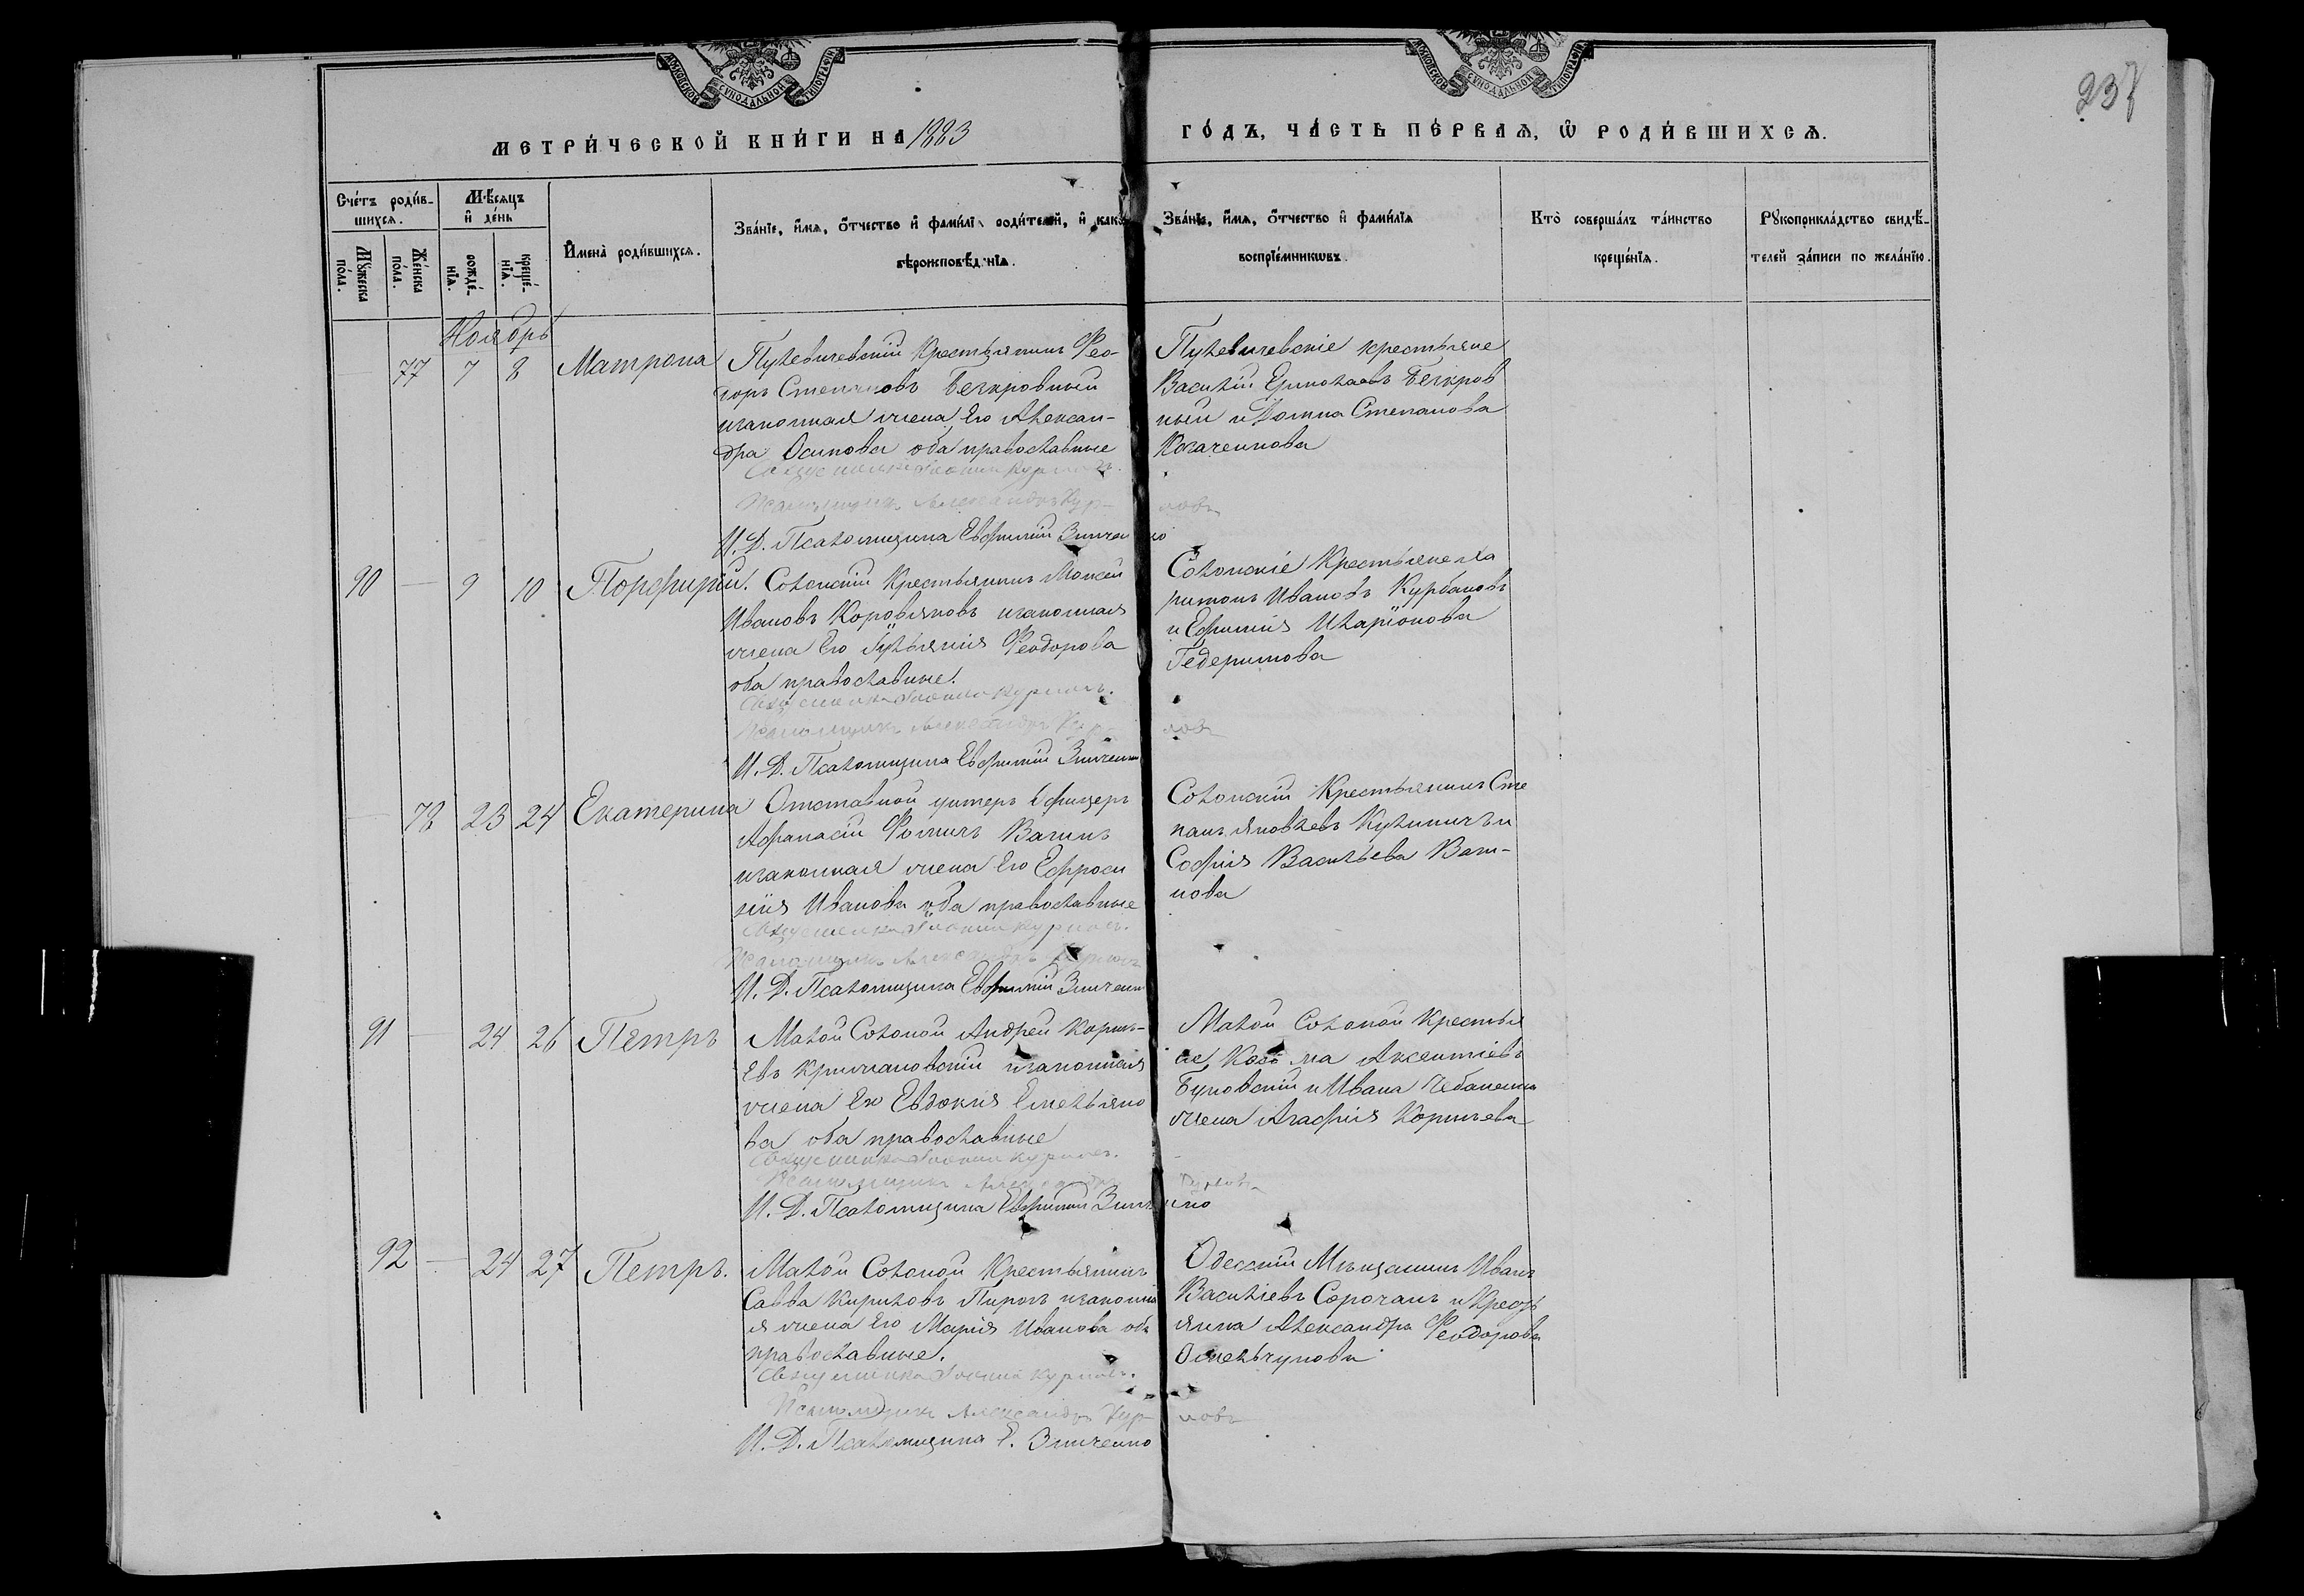 237
МОСКОВСКОЙ СѴНОДАЛЬНОЙ ТИПОГРАФІИ
МОСКОВСКОЙ СѴНОДАЛЬНОЙ ТИПОГРАФІИ
МЕТРИ́ЧЕСКОЙ КНИ́ГИ НА 1883
ГО́ДЪ, ЧА́СТЬ ПЕ́РВАѦ, Ѽ РОДИ́ВШИХСѦ.
Сче́тъ роди́в-
шихсѧ.
Мѣ́сѧцъ
и҆ де́нь
Мꙋ́жеска
по́ла.
Же́нска
по́ла.
рожде́-
нїѧ.
креще́-
нїѧ.
И҆мена̀ роди́вшихсѧ.
Зва́нїе, и҆́мѧ, ѻ҆́тчество и҆ фамѝлї роди́телей, и҆ како
вѣроисповѣ́д нїѧ.
Зва́нїе, и҆́мѧ, ѻ҆́тчество и҆ фами́лїѧ
воспрїе́мникѡвъ.
Кто̀ соверша́лъ та́инство
креще́нїѧ.
Рꙋкоприкла́дство свидѣ́-
телей за́писи по жела́нїю.
Ноябрь
77 7 8 Матрона
Пулевичевскій Крестьянинъ Фео-
доръ Степановъ Безкровный
изаконная жена Его Алексан-
дра Осипова оба православные
Священникъ Іоаннъ Курловъ.
Псаломщикъ Александръ Кур-ловъ
И. Д. Псаломщика Евфимій Зинченко
Пулевичевскіе крестьяне
Василій Ермолаевъ Безкров
ный и Домна Степанова
Казаченкова
90 — 9 10 Порфирій.
Солонскій Крестьянинъ Моисей
Ивановъ Коровяковъ изаконная
жена Его Іульянія Феодорова
оба православные.
Священникъ Іоаннъ Курловъ.
Псаломщикъ Александръ Кур-ловъ
И. Д. Псаломщика Евфимій Зинченко
Солонскіе Крестьяне Ха
ритонъ Ивановъ Курбановъ
и Ефимія Иларіонова
Гедеримова
— 78 23 24 Екатерина
Отставной унтеръ Офицеръ
Афанасій Фоминъ Вагинъ
изаконная жена Его Ефроси
нія Иванова оба православные
Священникъ Іоаннъ Курловъ.
Псаломщикъ Александръ Курловъ
И. Д. Псаломщика Евфимій Зинченко
Солонскій Крестьянинъ Сте
панъ Яковлевъ Кулиничъ и
Софія Васильева Ваги-
нова
91 — 24 26 Петръ
Малой Солоной Андрей Корни-
евъ Крижановскій изаконная
жена Его Евдокія Емельяно
ва оба православные
Священникъ Іоаннъ Курловъ.
Псаломщикъ Александръ Курловъ
И. Д. Псаломщика Евфимій Зинченко
Малой Солоной Крестья
не, Козьма Аксентіевъ
Буковскій и Ивана Чебаненка
жена Агафія Корніева
92 — 24 27 Петръ.
Малой Солоной Крестьянинъ
Савва Кириловъ Пирогъ изаконна
я жена Его Марія Иванова оба
православные.
Священникъ Іоаннъ Курловъ.
Псаломщикъ Александръ Кур-ловъ
И. Д. Псаломщика Е. Зинченко
Одесскій Мѣщанинъ Иванъ
Василіевъ Сорочанъ и Кресть
янка Александра Феодорова
Омельчукова